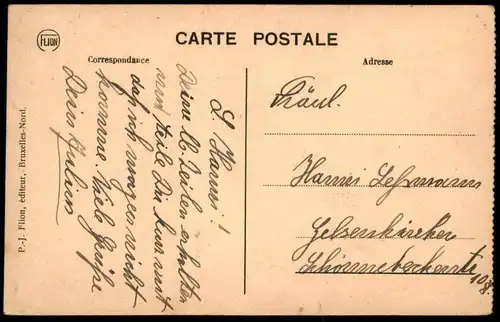 FLION
CARTE POSTALE
Correspondance
Adresse
P.-J. Flion, éditeur,- Bruxelles-Nord.
L. Hanni!
Deine lb Zeilen erhalten
und teile Dir kurz mit
daß ich morgen nicht
komme. Viele Grüße
Dein Julius
Fräul.
Hanni Lehmann
Gelsenkirchen
Schonnebeckerstr
108.